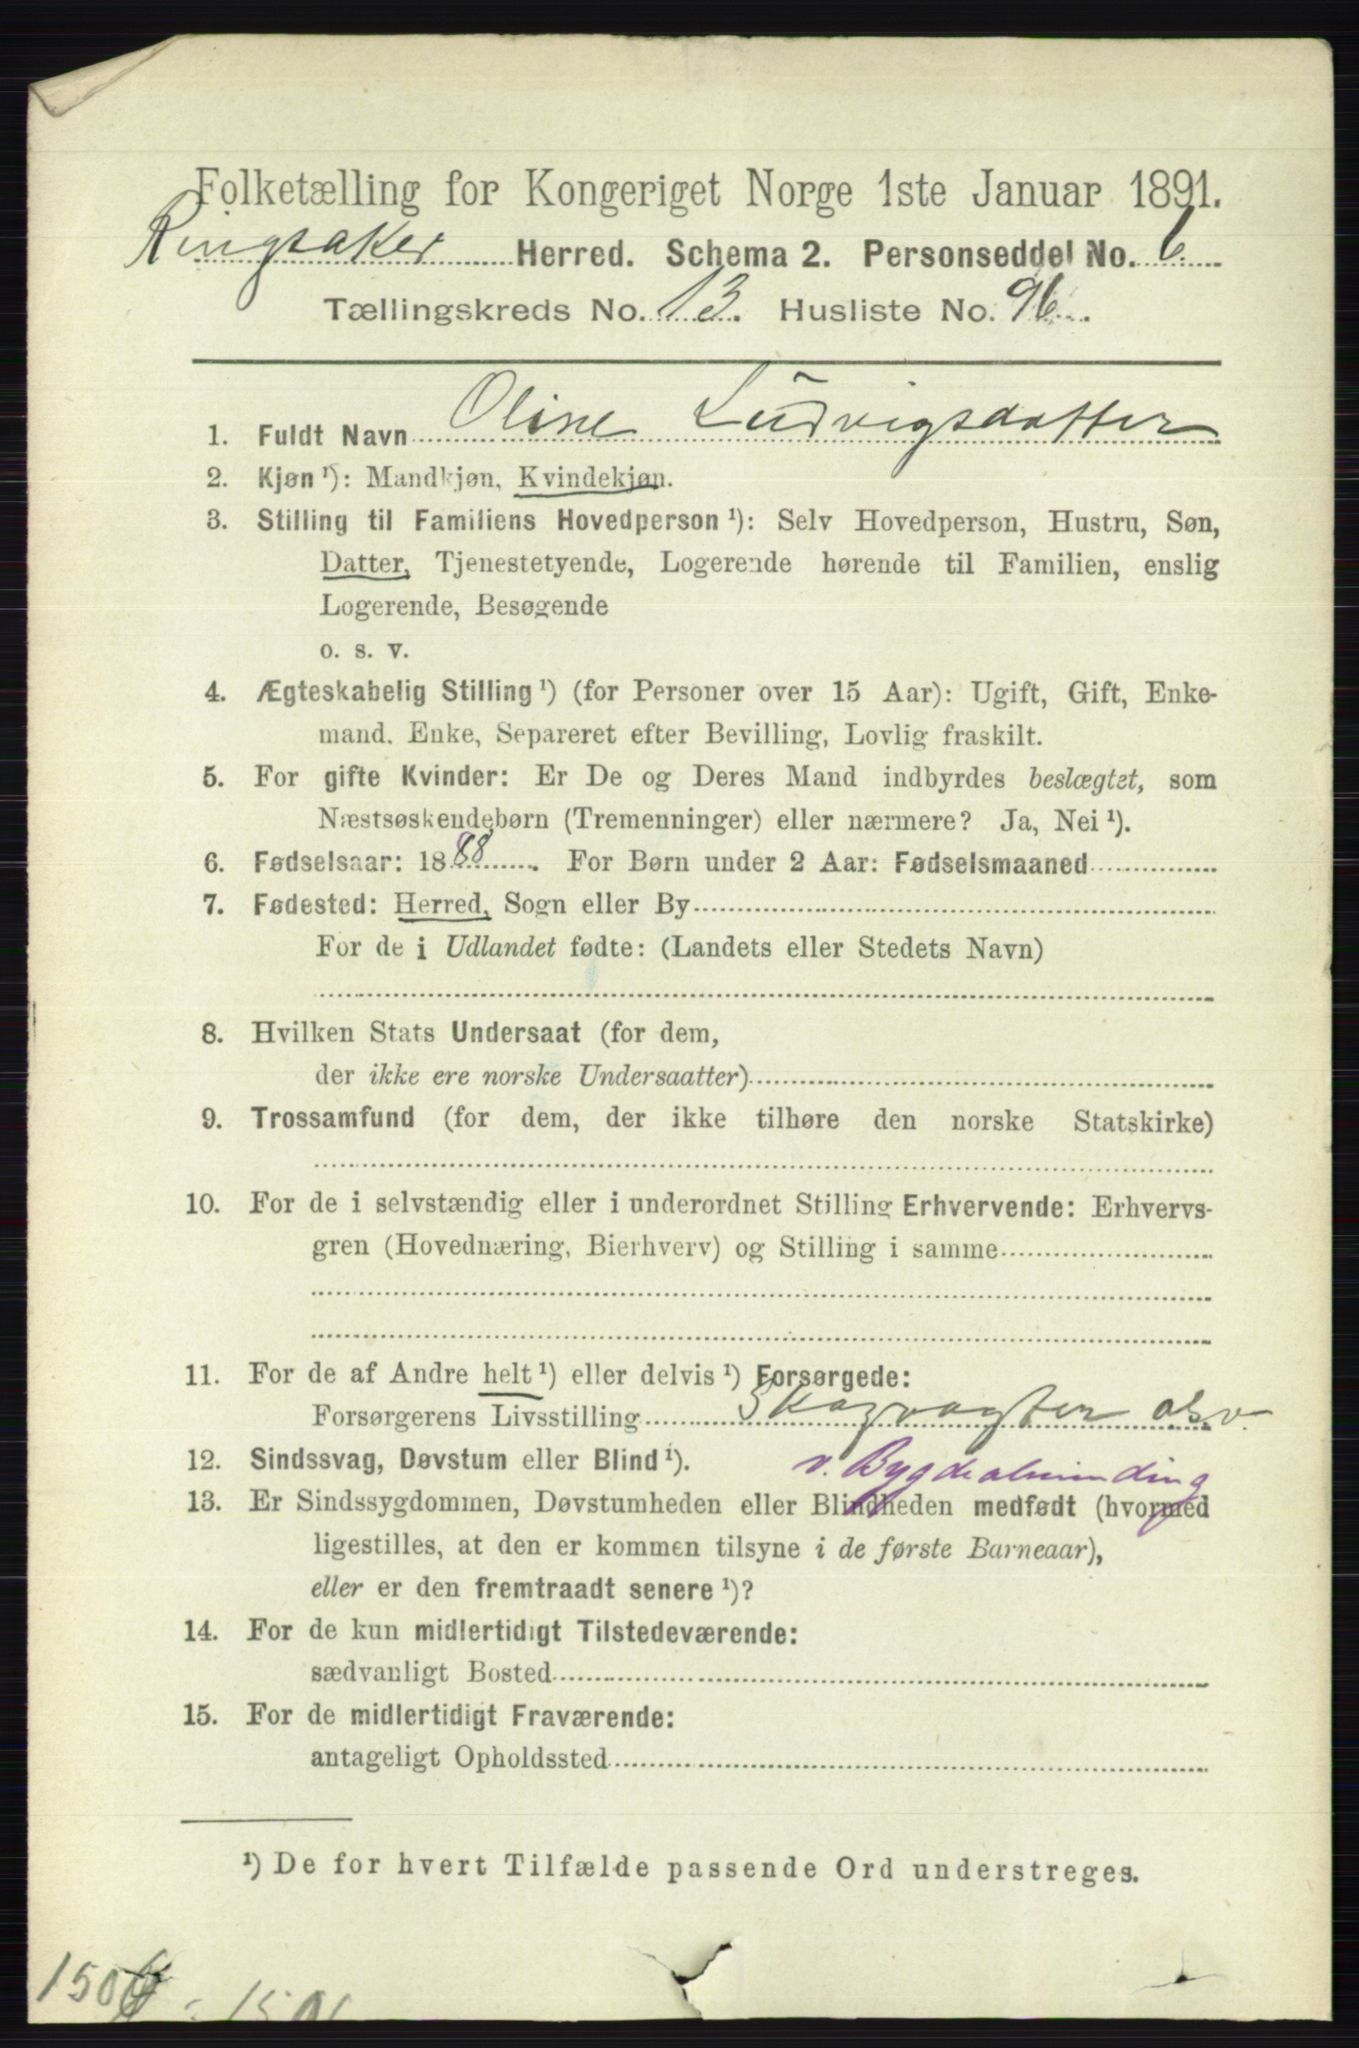 Folketælling for Kongeriget Norge 1ste Januar 1891.
Ringsaker Herred. Schema 2. Personseddel No. 6.
Tællingskreds No. 13. Husliste No. 96.
1. Fuldt Navn Oline Ludvigsdatter
2. Kjøn ¹): Mandkjøn, Kvindekjøn.
3. Stilling til Familiens Hovedperson ¹): Selv Hovedperson, Hustru, Søn,
Datter, Tjenestetyende, Logerende hørende til Familien, enslig
Logerende, Besøgende
o. s. v.
4. Ægteskabelig Stilling ¹) (for Personer over 15 Aar): Ugift, Gift, Enke-
mand, Enke, Separeret efter Bevilling, Lovlig fraskilt.
5. For gifte Kvinder: Er De og Deres Mand indbyrdes beslægtet, som
Næstsøskendebørn (Tremenninger) eller nærmere? Ja, Nei ¹).
6. Fødselsaar: 1888. For Børn under 2 Aar: Fødselsmaaned
7. Fødested: Herred, Sogn eller By
For de i Udlandet fødte: (Landets eller Stedets Navn)
8. Hvilken Stats Undersaat (for dem,
der ikke ere norske Undersaatter)
9. Trossamfund (for dem, der ikke tilhøre den norske Statskirke)
10. For de i selvstændig eller i underordnet Stilling Erhvervende: Erhvervs-
gren (Hovednæring, Bierhverv) og Stilling i samme
11. For de af Andre helt ¹) eller delvis ¹) Forsørgede:
Forsørgerens Livsstilling Skogvogter osv.
12. Sindssvag, Døvstum eller Blind ¹). v. Bygdealminding
13. Er Sindssygdommen, Døvstumheden eller Blindheden medfødt (hvormed
ligestilles, at den er kommen tilsyne i de første Barneaar),
eller er den fremtraadt senere ¹)?
14. For de kun midlertidigt Tilstedeværende:
sædvanligt Bosted
15. For de midlertidigt Fraværende:
antageligt Opholdssted
¹) De for hvert Tilfælde passende Ord understreges.